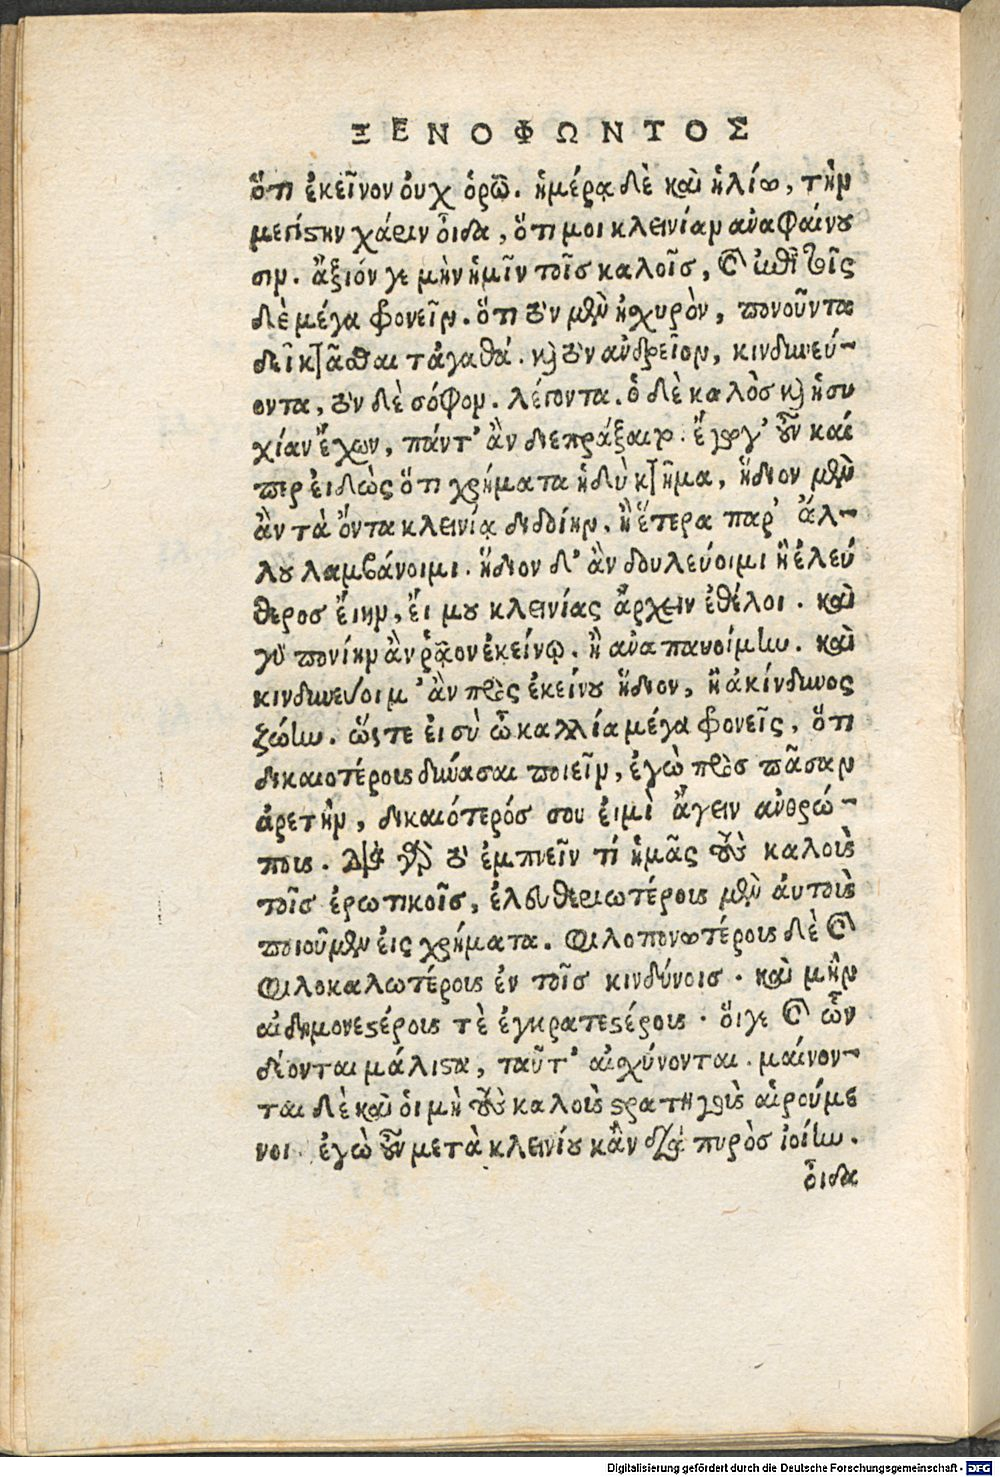 ΞΕΝΟΦΩΝΤΟΣ
ὅτι ἐκεῖνον ὀυχ ὁρῶ. ἡμέρᾳ δὲ καὶ ἡλίω, τὴν
μεγίστην χάριν ὀῖδα, ὅτι μοι κλεινίαν ἀναφαίνου
σιν. ἄξιόν γε μὴν ἡμῖν τοῖς καλοῖς, καὶ ἐπὶ τοῖς
δὲ μέγα φονεῖν. ὅτι τὸν μὲν ἰσχυρὸν, πονοῦντα
δεῖ κτᾶσθαι τἀγαθά. καὶ τὸν ἀνδρεῖον, κινδυνεύ-
οντα, τὸν δὲ σόφον. λέγοντα. ὁ δὲ καλὸς καὶ ἡσυ
χίαν ἔχων, πάντ' ἂν διεπράξαιτο. ἔγωγ' οὖν καί
περ ἐιδὼς ὅτι χρήματα ἡδὺ κτῆμα, ἥδιον μὲν
ἂν τὰ ὄντα κλεινίᾳ διδόιην. ἢ ἕτερα παρ' ἄλ-
λου λαμβάνοιμι. ἥδιον δ' ἂν δουλεύοιμι ἢ ἐλεύ
θερος ἔιην, ἔι μου κλεινίας ἄρχειν ἐθέλοι. καὶ
γὰρ πονόιην ἂν ῥᾷον ἐκείνῳ. ἢ ἀναπαυοίμην. καὶ
κινδυνεύοιμ' ἂν πρὸς ἐκείνου ἥδιον, ἢ ἀκίνδυνος
ζώην. ὥστε ἐι σὺ ὦ καλλία μέγα φονεῖς, ὅτι
δικαιοτέρους δύνασαι ποιεῖν, ἐγὼ πρὸς πᾶσαν
ἀρετὴν, δικαιότερός σου ἐιμὶ ἄγειν ἀνθρώ-
πους. διὰ γὰρ τὸ ἐμπνεῖν τί ἡμᾶς τοὺς καλοὺς
τοῖς ἐρωτικοῖς, ἐλευθεριωτέρους μὲν ἀυτοὺς
ποιοῦμεν ἐις χρήματα. φιλοπονωτέρους δὲ καὶ
φιλοκαλωτέρους ἐν τοῖς κινδύνοις. καὶ μὴν
αἰδημονεστέρους τὲ ἐγκρατεστέρους. ὅιγε καὶ ὧν
δέονται μάλιστα, ταῦτ' αἰσχύνονται. μαίνον-
ται δὲ καὶ ὁι μὴ τοὺς καλοὺς στρατηγοὺς αἱρούμε
νοι. ἐγὼ οὖν μετὰ κλεινίου κἂν διὰ πυρὸς ἰοίην.
ὀῖδα
Digitalisierung gefördert durch die Deutsche Forschungsgemeinschaft - DFG